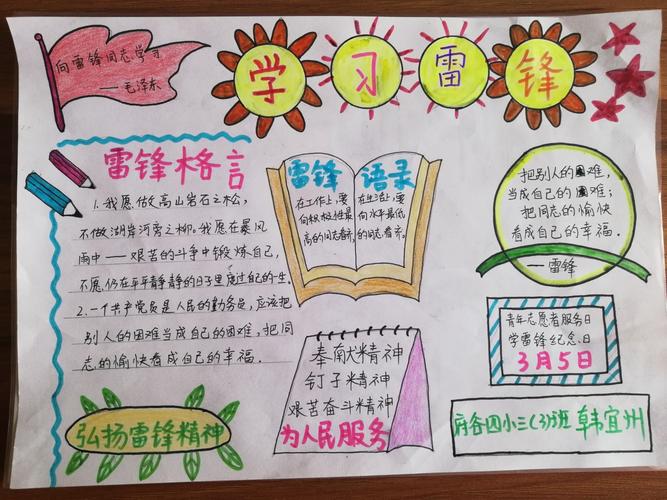 向雷锋同志学习
——毛泽东
学习雷锋
雷锋格言
1.我愿做高山岩石之松，
不做湖岸河旁之柳。我愿在暴风
雨中——艰苦的斗争中锻炼自己，
不愿仍在平平静静的日子里度过自己的一生。
2.一个共产党员是人民的勤务员，应该把
别人的困难当成自己的困难，把同
志的愉快看成自己的幸福。
弘扬雷锋精神
雷锋语录
在工作上，要
向积极性最
高的同志看齐，
在生活上，要
向水平最低
的同志看齐。
奉献精神
钉子精神
艰苦奋斗精神
为人民服务
把别人的困难，
当成自己的困难；
把同志的愉快
看成自己的幸福。
——雷锋
青年志愿者服务日
学雷锋纪念日
3月5日
府谷四小三(3)班 韩宜州